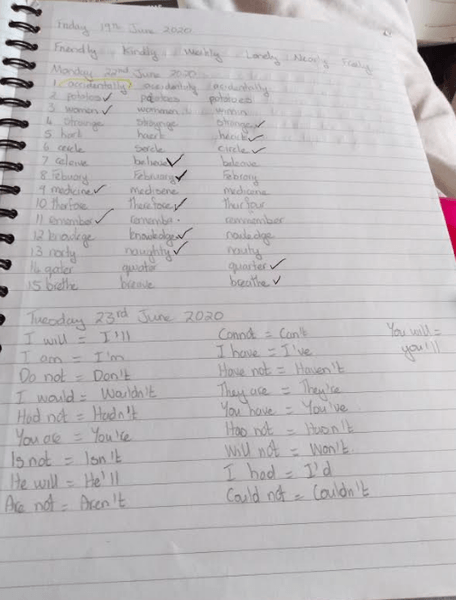 Friday 19th June 2020
Friendly Kindly Weekly Lonely Nearly
Monday 22nd June 2020
1. accidentally
2 potatoes ✓ potatoes
3 women ✓
4 strange strange ✓
5 heart ✓
6 circle circle ✓
7 releive believe ✓ beleave
8. Febuary February ✓ Febrary
9 medicine ✓ medisene
10 therfore Therefore ✓ Thar four
11 remember ✓ remembe
12 knowledge ✓
13 norty naughty ✓ nauty
14 quarter ✓
15 brethe breathe ✓
Tuesday 23rd June 2020
I will = I'll Cannot = Can't You will =
I am = I'm I have = I've you'll
Do not = Don't Have not = Haven't
I would = Wouldn't They are = They're
Had not = Hadn't You have = You've
You are = You're Has not = Hasn't
Is not = Isn't Will not = Won't
He will = He'll I had = I'd
Are not = Aren't Could not = Couldn't